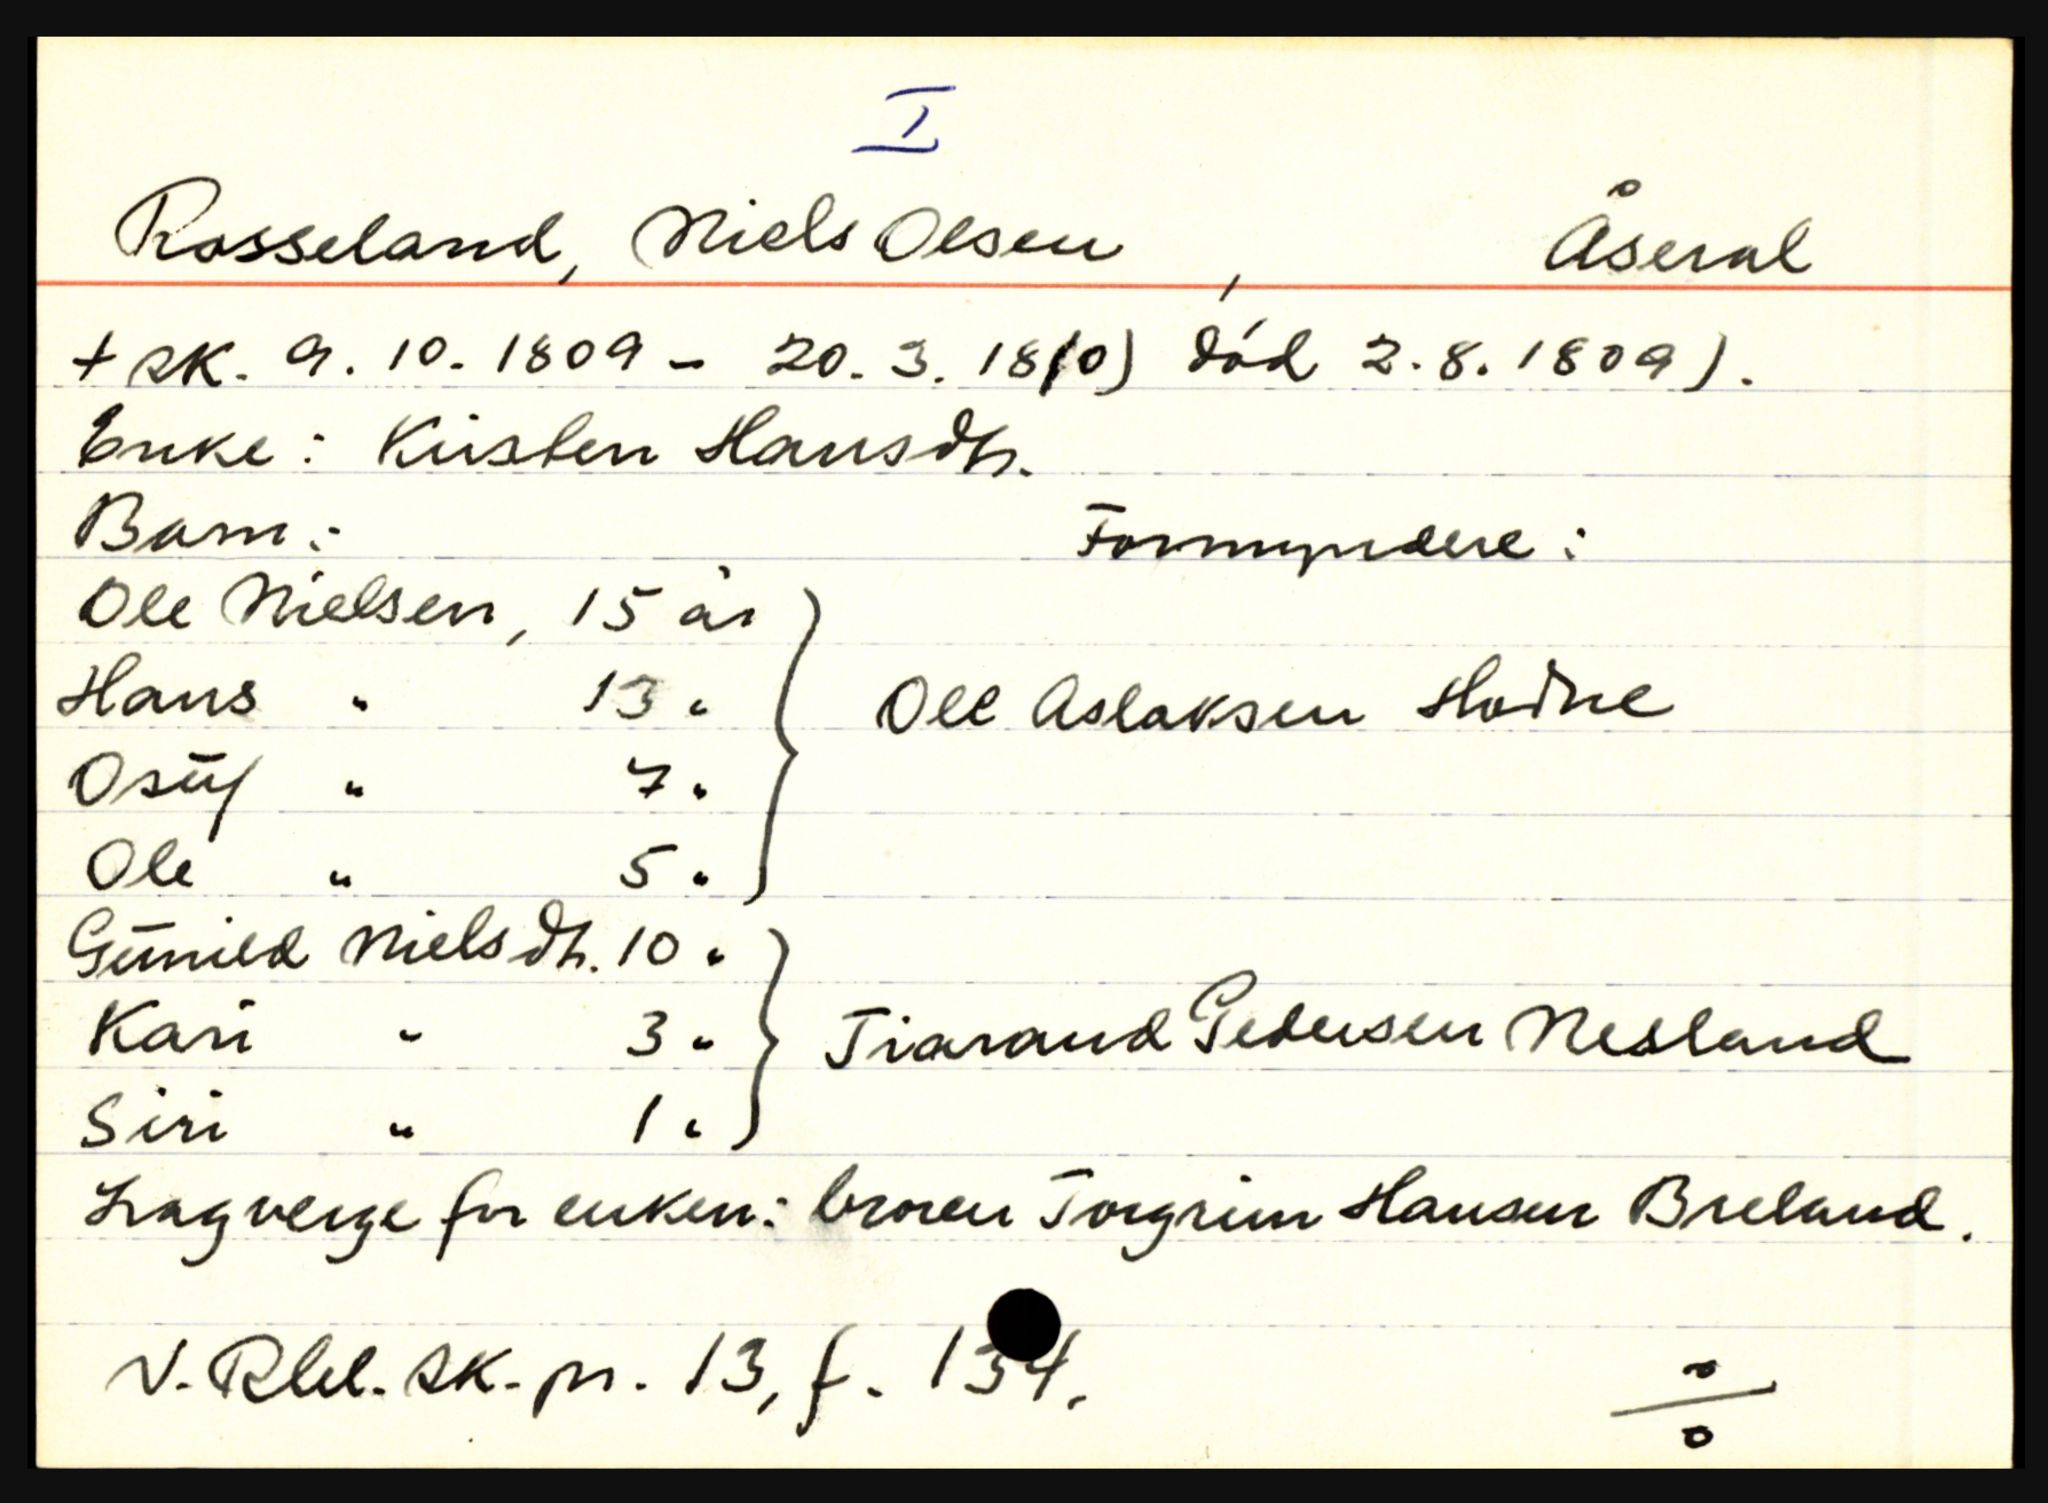 I
Rosseland, Niels Olsen, Åseral
+ sk. 9.10.1809 - 20.3.1810) død 2.8.1809).
Enke: Kirsten Hansdtr.
Barn: Formyndere:
Ole Nielsen, 15 år
Hans " 13 " Ole Aslaksen Hodne
Osuf " 7 "
Ole " 5 "
Gunild Nielsdtr. 10 "
Kari " 3 " Tiarand Pedersen Nesland
Siri " 1 "
Lagverge for enken: broren Torgrim Hansen Breland.
V. Rbl. sk. pr. 13, f. 134.